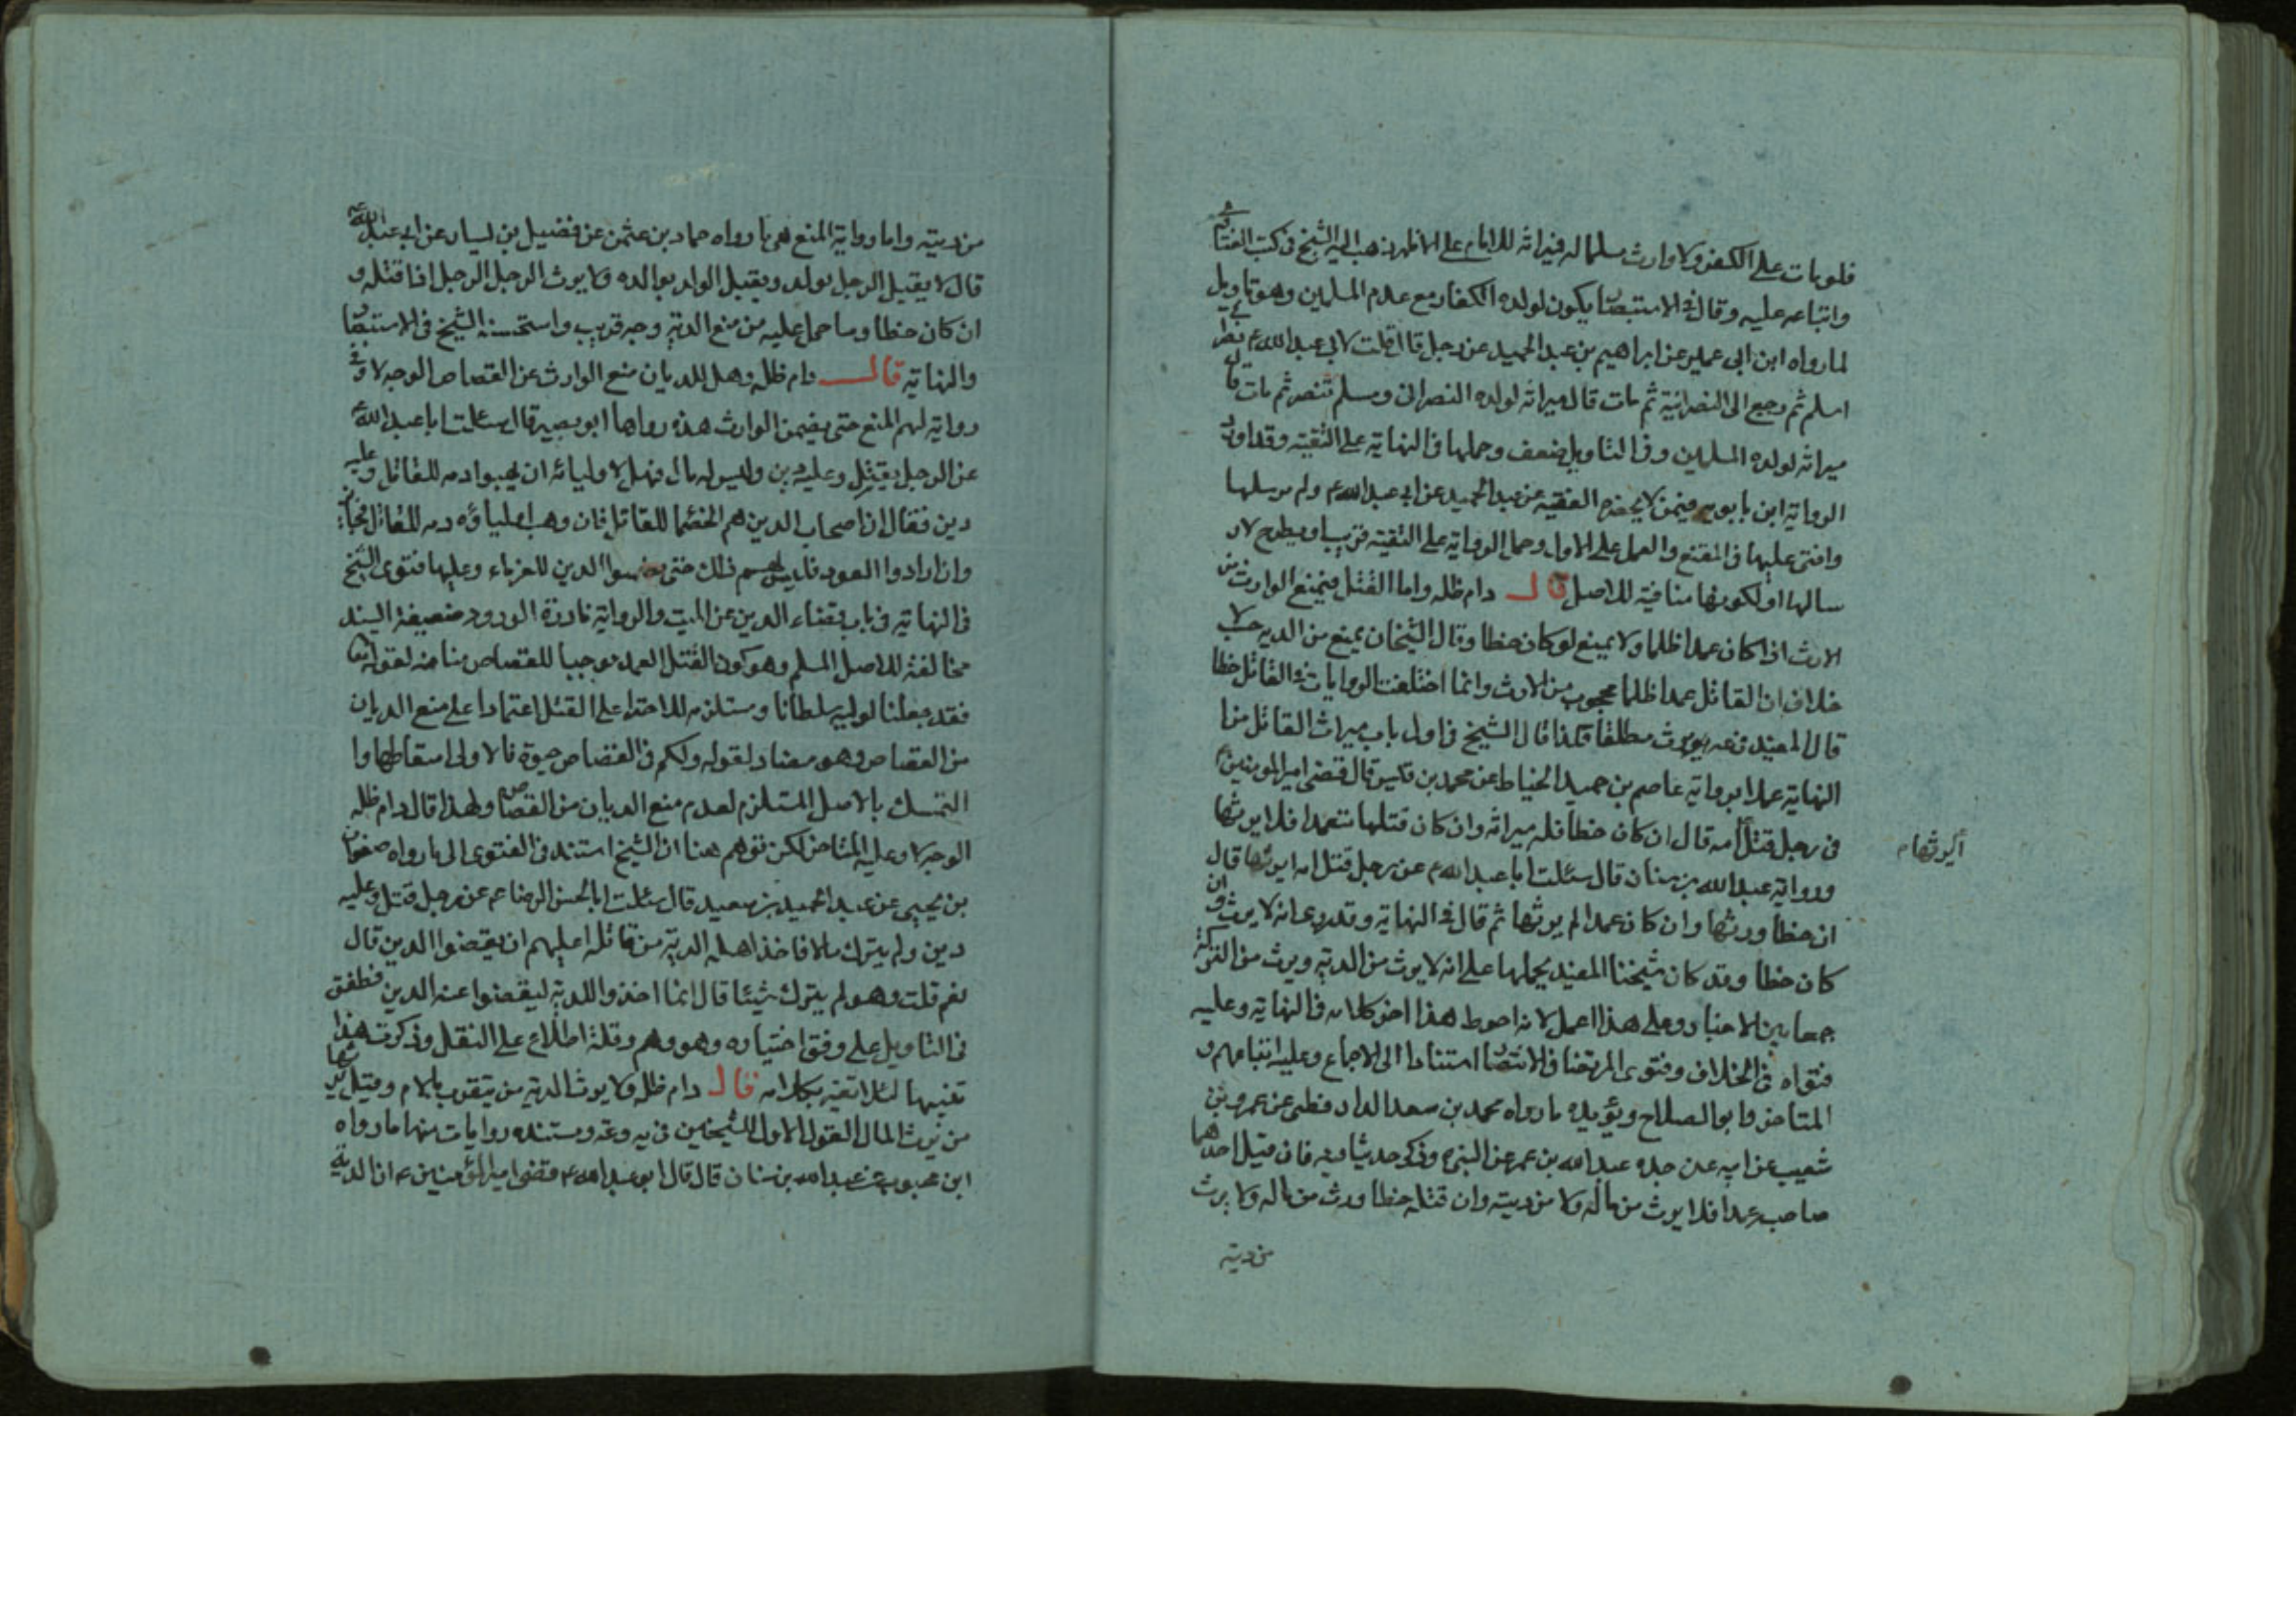 فلو مات على الكفر ولا وارث مسلما له فميراثه للامام على الاظهر ذهب اليه الشيخ في كتب الفتاوى
واتباعه عليه وقال في الاستبصار يكون لولده الكفار مع عدم المسلمين وهو تاويل
لما رواه ابن ابي عمير عن ابراهيم بن عبد الحميد عن رجل قال قلت لابي عبد الله ع نصراني
اسلم ثم رجع الى النصرانية ثم مات قال ميراثه لولده النصراني ومسلم تنصر ثم مات قال
ميراثه لولده المسلمين وفي التاويل ضعف وحملها في النهاية على التقية وقد اورد
الرواية ابن بابويه فيمن لا يحضره الفقيه عن عبد الحميد عن ابي عبد الله ع ولم يرسلها
وافتى عليها في المقنع والعمل على الاول وحمل الرواية على التقية قريب او يطرح لار
سالها او لكونها منافية للاصل قال دام ظله واما القتل فيمنع الوارث من
الارث اذا كان عمدا ظلما ولا يمنع لو كان خطا وقال الشيخان يمنع من الدية حسب لا
خلاف ان القاتل عمدا ظلما محجوب من الارث وانما اختلفت الروايات في القاتل خطا
قال المفيد في عه يورث مطلقا وكذا قال الشيخ في اول باب ميراث القاتل من
النهاية عملا برواية عاصم بن حميد الحناط عن محمد بن قيس قال قضى امير المومنين ع
في رجل قتل امه قال ان كان خطا فله ميراثه وان كان قتلها متعمدا فلا يرثها
ايرثها م
ورواية عبد الله بن سنان قال سئلت ابا عبد الله ع عن رجل قتل امه ايرثها قال
ان خطا ورثها وان كان عمدا لم يورثها ثم قال في النهاية وقد روى انه لا يرث وان
كان خطا وقد كان شيخنا المفيد يحملها على انه لا يرث من الدية ويرث من التركة
جمعا بين الاخبار وعلى هذا اعمل لانه احوط هذا اخر كلامه في النهاية وعليه
فتواه في الخلاف وفتوى المرتضا في الانتصار استنادا الى الاجماع وعليه اتباعهم و
المتاخر وابو الصلاح ويؤيده ما رواه محمد بن سعد الدارقطني عن عمرو بن
شعيب عن ابيه عن جده عبد الله بن عمر عن النبي ص وذكر حديثا وفيه فان قتل احدهما
صاحبه عمدا فلا يورث من ماله ولا من ديته وان قتله خطا ورث من ماله ولا يرث
من ديته
من ديته واما رواية المنع فهي ما رواه حماد بن عثمن عن فضيل بن يسار عن ابي عبد الله ع
قال لا يقتل الرجل بولده ويقتل الولد بوالده ولا يورث الرجل الرجل اذا قتله و
ان كان خطا وما حمل عليه من منع الدية وجه قريب واستحسنه الشيخ في الاستبصار
والنهاية قال دام ظله وهل للديان منع الوارث عن القصاص الوجه لا وفي
رواية لهم المنع حتى يضمن الوارث هذه رواها ابو بصير قال سئلت ابا عبد الله ع
عن الرجل يقتل وعليه دين وليس له مال فهل لاوليائه ان يهبوا دمه للقاتل وعليه
دين فقال ان اصحاب الدين هم الخصما للقاتل فان وهب اوليائه دمه للقاتل فجائز
وان ارادوا القود فليس لهم ذلك حتى يضمنوا الدين للغرماء وعليها فتوى الشيخ
في النهاية في باب قضاء الدين عن الميت والرواية نادرة الورود ضعيفة السند
مخالفة للاصل المسلم وهو كون القتل العمد موجبا للقصاص منافية لقوله تعا
فقد جعلنا لوليه سلطانا ومستلزمه للاجتراء على القتل اعتمادا على منع الديان
من القصاص وهو مضاد لقوله ولكم في القصاص حيوة فالاولى اسقاطها وا
التمسك بالاصل المستلزم لعدم منع الديان من القصاص ولهذا قال دام ظله
الوجه لا وعليه المتاخر لكن توهم هنا ان الشيخ استند في الفتوى الى ما رواه صفوان
بن يحيى عن عبد الحميد بن سعيد قال سئلت ابا الحسن الرضا عم عن رجل قتل وعليه
دين ولم يترك مالا فاخذ اهله الدية من قاتله اعليهم ان يقضوا الدين قال
نعم قلت وهو لم يترك شيئا قال انما اخذوا الدية ليقضوا عنه الدين فطفق
في التاويل على وفق اختياره وهو وهم وقلة اطلاع على النقل وذكرت هذا
تنبيها لئلا تغتر بكلامه قال دام ظله ولا يورث الدية من يتقرب بالام وقيل يرثها
من يرث المال القول الاول للشيخين في يه وعه ومستنده روايات منها ما رواه
ابن محبوب عن عبد الله بن سنان قال قال ابو عبد الله ع قضى امير المؤمنين ع ان الدية